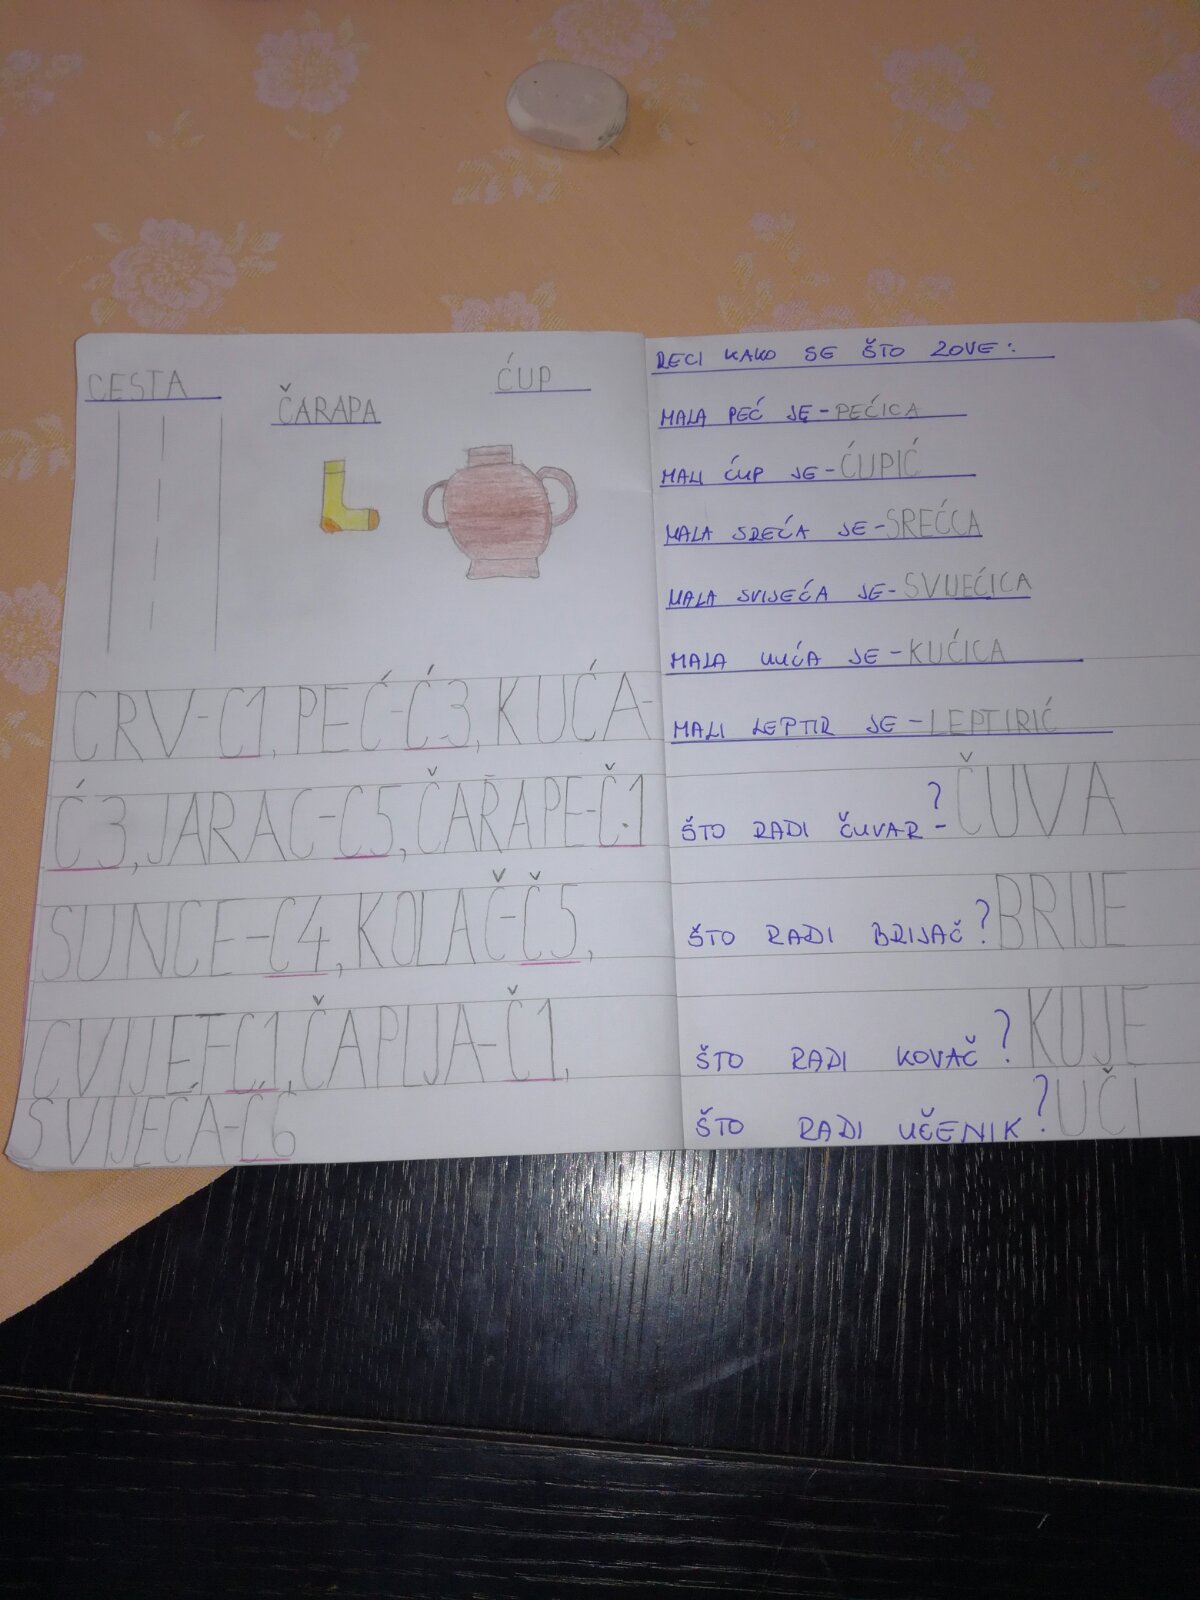 CESTA
ČARAPA
ĆUP
CRV-C1, PEĆ-Ć3, KUĆA-
Ć3, JARAC-C5, ČARAPE-Č1
SUNCE-C4, KOLAČ-Č5,
CVIJET-C1, ČAPLJA-Č1,
SVIJEĆA-Ć6
RECI KAKO SE ŠTO ZOVE:
MALA PEĆ JE-PEĆICA
MALI ĆUP JE-ĆUPIĆ
MALA SREĆA JE-SREĆCA
MALA SVIJEĆA JE-SVIJEĆICA
MALA KUĆA JE-KUĆICA
MALI LEPTIR JE-LEPTIRIĆ
ŠTO RADI ČUVAR?-ČUVA
ŠTO RADI BRIJAČ? BRIJE
ŠTO RADI KOVAČ? KUJE
ŠTO RADI UČENIK? UČI